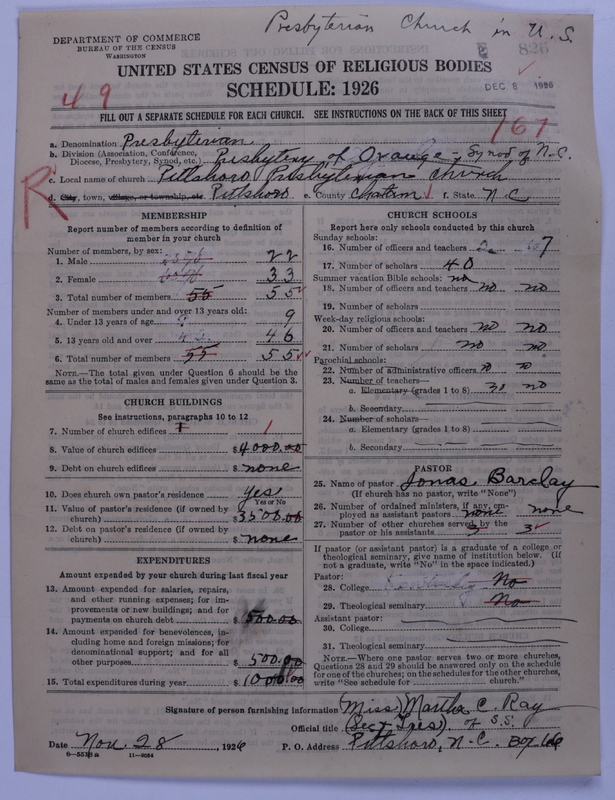 Presbyterian Church in U.S.
DEPARTMENT OF COMMERCE
BUREAU OF THE CENSUS
WASHINGTON
826
UNITED STATES CENSUS OF RELIGIOUS BODIES
SCHEDULE: 1926
DEC 8 1926
49
FILL OUT A SEPARATE SCHEDULE FOR EACH CHURCH. SEE INSTRUCTIONS ON THE BACK OF THIS SHEET
167
a. Denomination Presbyterian
b. Division (Association, Conference, Diocese, Presbytery, Synod, etc.) Presbytery of Orange - Synod of N.C.
c. Local name of church Pittsboro Presbyterian Church
R
d. City, town, village, or township, etc. Pittsboro e. County Chatham f. State N.C
MEMBERSHIP
Report number of members according to definition of
member in your church
Number of members, by sex:
1. Male 22
2. Female 33
3. Total number of members 55 55
Number of members under and over 13 years old:
4. Under 13 years of age 9
5. 13 years old and over 46
6. Total number of members 55 55
NOTE.—The total given under Question 6 should be
same as the total of males and females given under Question 3.
CHURCH BUILDINGS
See instructions, paragraphs 10 to 12
7. Number of church edifices 1 1
8. Value of church edifices $4000.00
9. Debt on church edifices $none
10. Does church own pastor's residence yes
Yes or No
11. Value of pastor's residence (if owned by
church) $3500.00
12. Debt on pastor's residence (if owned by
church) $none
EXPENDITURES
Amount expended by your church during last fiscal year
13. Amount expended for salaries, repairs,
and other running expenses; for im-
provements or new buildings; and for
payments on church debt $500.00
14. Amount expended for benevolences, in-
cluding home and foreign missions; for
denominational support; and for all
other purposes $500.00
15. Total expenditures during year $1000.00
CHURCH SCHOOLS
Report here only schools conducted by this church
Sunday schools:
16. Number of officers and teachers 7
17. Number of scholars 40
Summer vacation Bible schools: no
18. Number of officers and teachers no no
19. Number of scholars
Week-day religious schools:
20. Number of officers and teachers no no
21. Number of scholars no no
Parochial schools:
22. Number of administrative officers no no
23. Number of teachers—
a. Elementary (grades 1 to 8) no
b. Secondary
24. Number of scholars—
a. Elementary (grades 1 to 8)
b. Secondary
PASTOR
25. Name of pastor Jonas Barclay
(If church has no pastor, write "None")
26. Number of ordained ministers, if any, em-
ployed as assistant pastors none none
27. Number of other churches served by the
pastor or his assistants 3 3
If pastor (or assistant pastor) is a graduate of a college or
theological seminary, give name of institution below. (If
not a graduate, write "No" in the space indicated.)
Pastor:
28. College No
29. Theological seminary No
Assistant pastor:
30. College
31. Theological seminary
NOTE.—Where one pastor serves two or more churches,
Questions 28 and 29 should be answered only on the schedule
for one of the churches; on the schedules for the other churches,
write "See schedule for church."
Signature of person furnishing information Miss Martha C. Ray
Official title (Sec & Tres) of S.S.
Date Nov. 28, 1926 P. O. Address Pittsboro, N.C. Box 66
6-5538a 11-9084